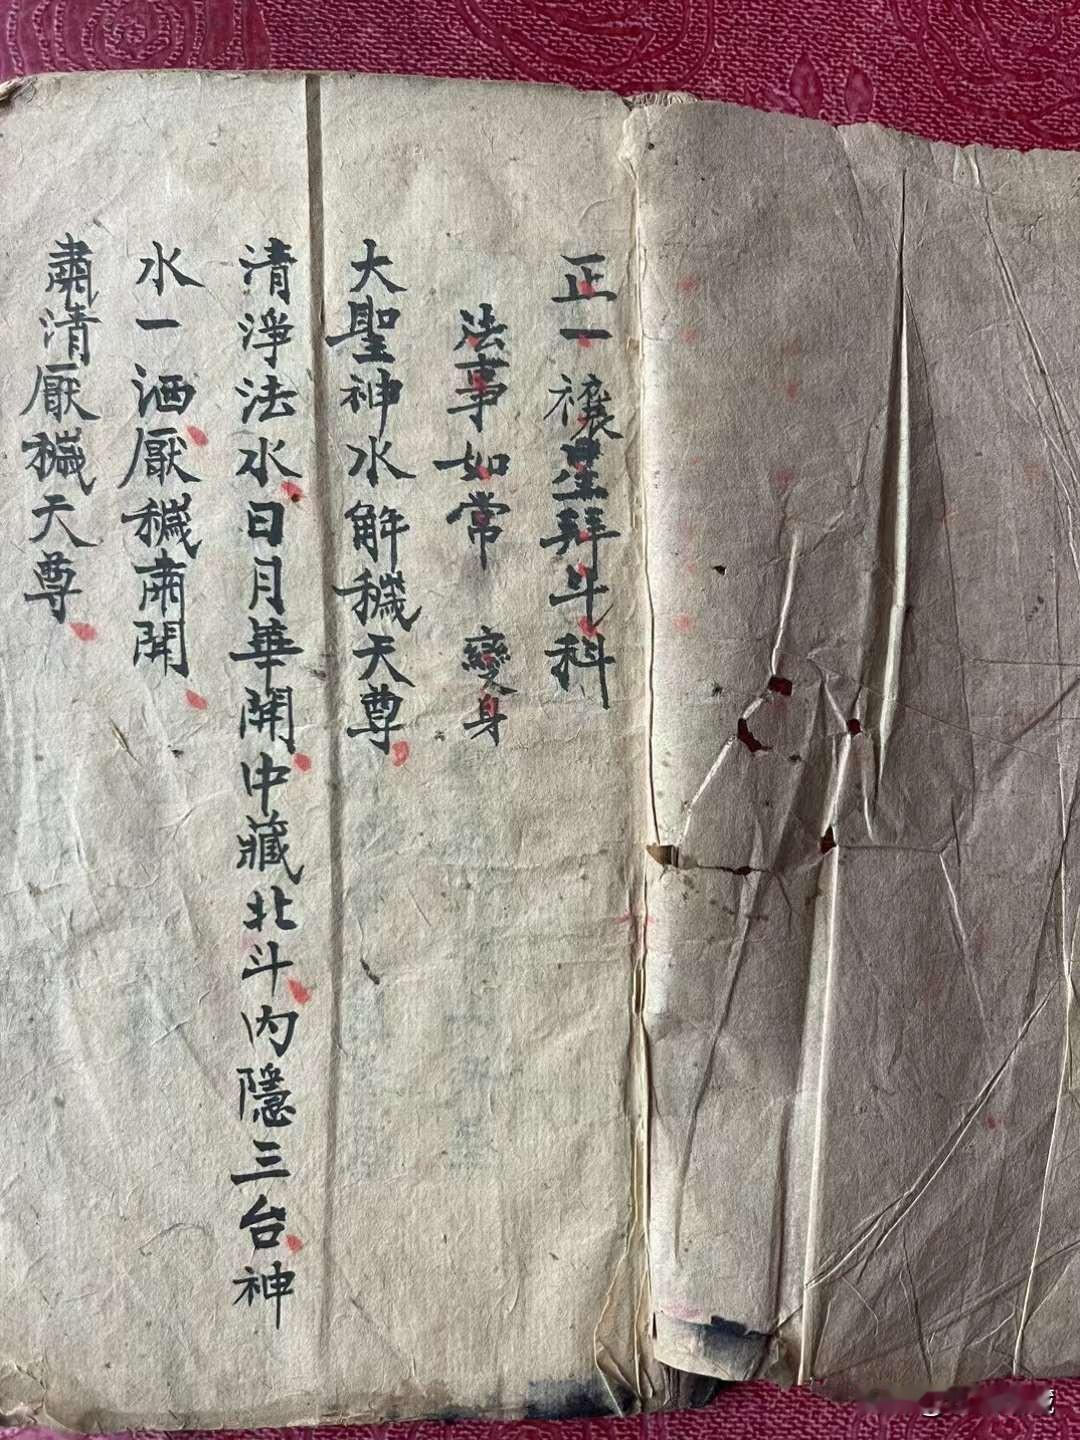 正一禳星拜斗科
法事如常　變身
大聖神水解穢天尊
清淨法水日月華開中藏北斗內隱三台神
水一洒厭穢肅開
肅清厭穢天尊